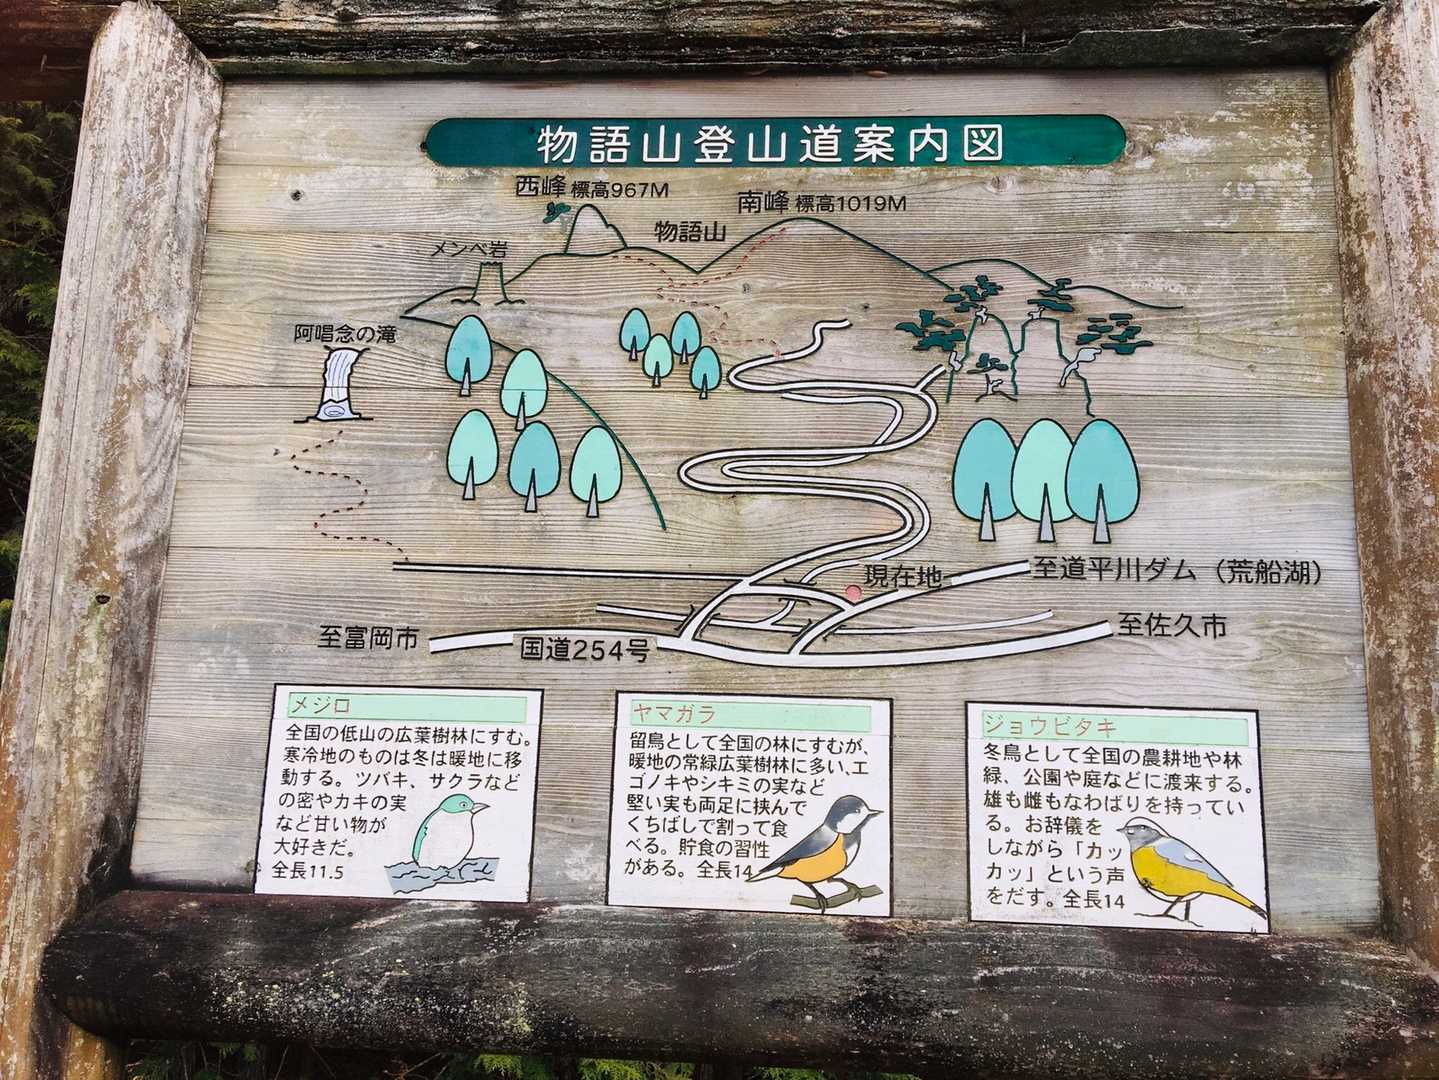 物語山登山道案内図
西峰 標高967M
南峰 標高1019M
物語山
メンベ岩
阿唱念の滝
現在地
至道平川ダム（荒船湖）
至富岡市
国道254号
至佐久市
メジロ
全国の低山の広葉樹林にすむ。
寒冷地のものは冬は暖地に移
動する。ツバキ、サクラなど
の密やカキの実
など甘い物が
大好きだ。
全長11.5
ヤマガラ
留鳥として全国の林にすむが、
暖地の常緑広葉樹林に多い､エ
ゴノキやシキミの実など
堅い実も両足に挟んで
くちばしで割って食
べる。貯食の習性
がある。全長14
ジョウビタキ
冬鳥として全国の農耕地や林
緑、公園や庭などに渡来する。
雄も雌もなわばりを持ってい
る。お辞儀を
しながら「カッ
カッ」という声
をだす。全長14